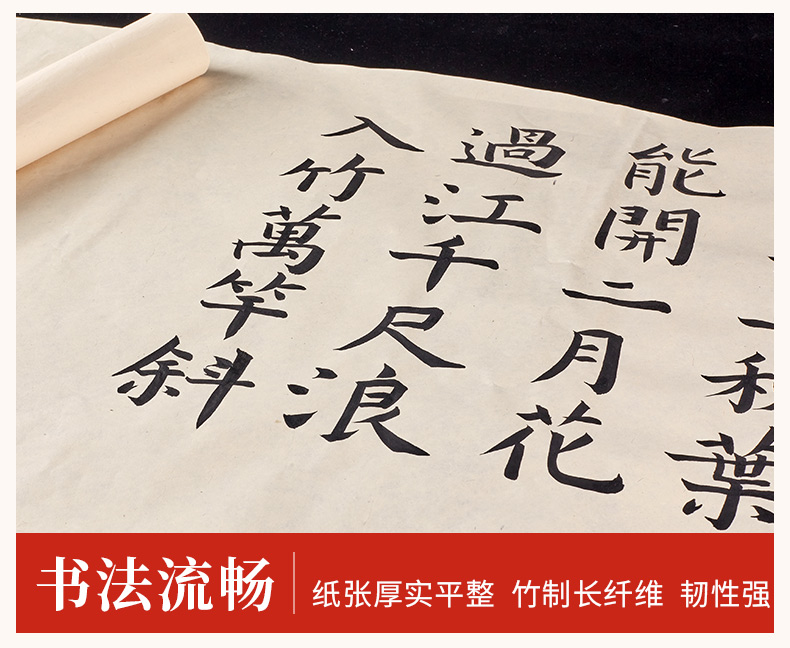 秋葉
能開二月花
過江千尺浪
入竹萬竿斜
书法流畅
纸张厚实平整 竹制长纤维 韧性强